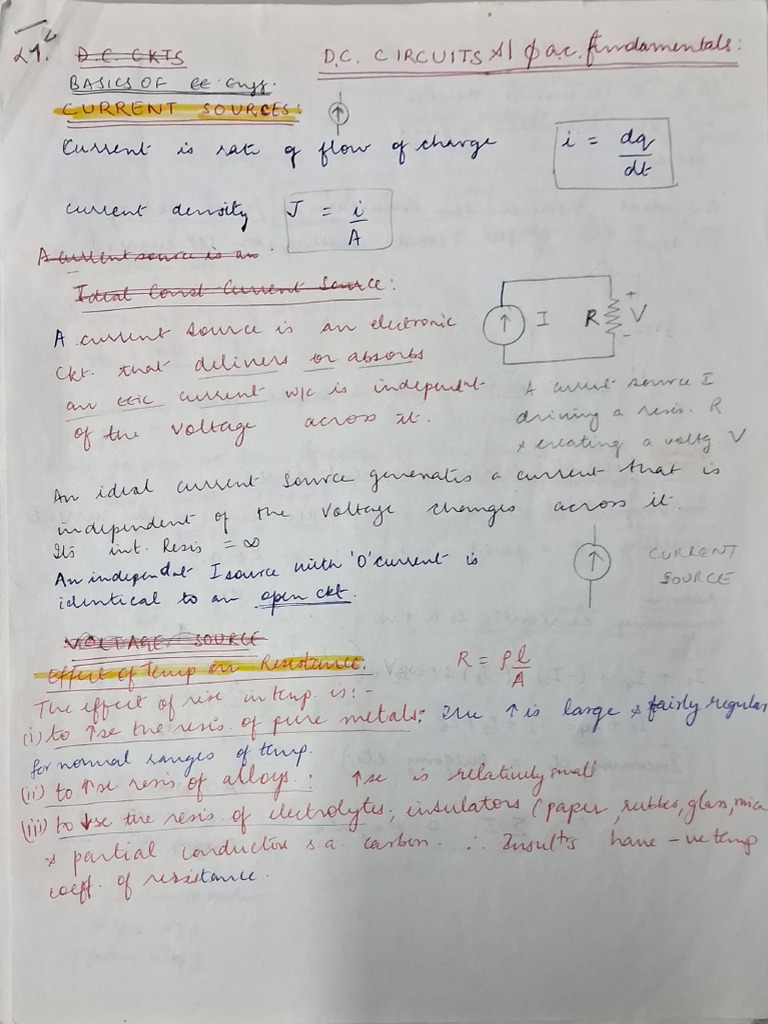 L1. D.C. CKTS
D.C. CIRCUITS & 1 φ a.c. fundamentals:
BASICS OF ee. engg.
CURRENT SOURCES:
Current is rate of flow of charge
i = dq/dt
current density J = i/A
A current source is an
Ideal Const Current Source:
I R + V -
A current source is an electronic
ckt. that delivers or absorbs
an ctic current w/c is independent
of the voltage across it.
A current source I
driving a resis. R
& creating a voltg. V
An ideal current source generates a current that is
independent of the voltage changes across it.
Its int. Resis = ∞
An independt I source with 'O' current is
identical to an open ckt.
CURRENT
SOURCE
VOLTAGE SOURCE
Effect of temp on Resistance.
R = ρ l/A
The effect of rise in temp. is:-
(i) to ↑se the resis. of pure metals; The ↑ is large & fairly regular
for normal ranges of temp.
(ii) to ↑se resis of alloys: ↑se is relatively small
(iii) to ↓se the resis of electrolytes, insulators (paper, rubber, glass, mica
& partial conductors s.a. carbon. ∴ Insults have -ve temp
coeff. of resistance.